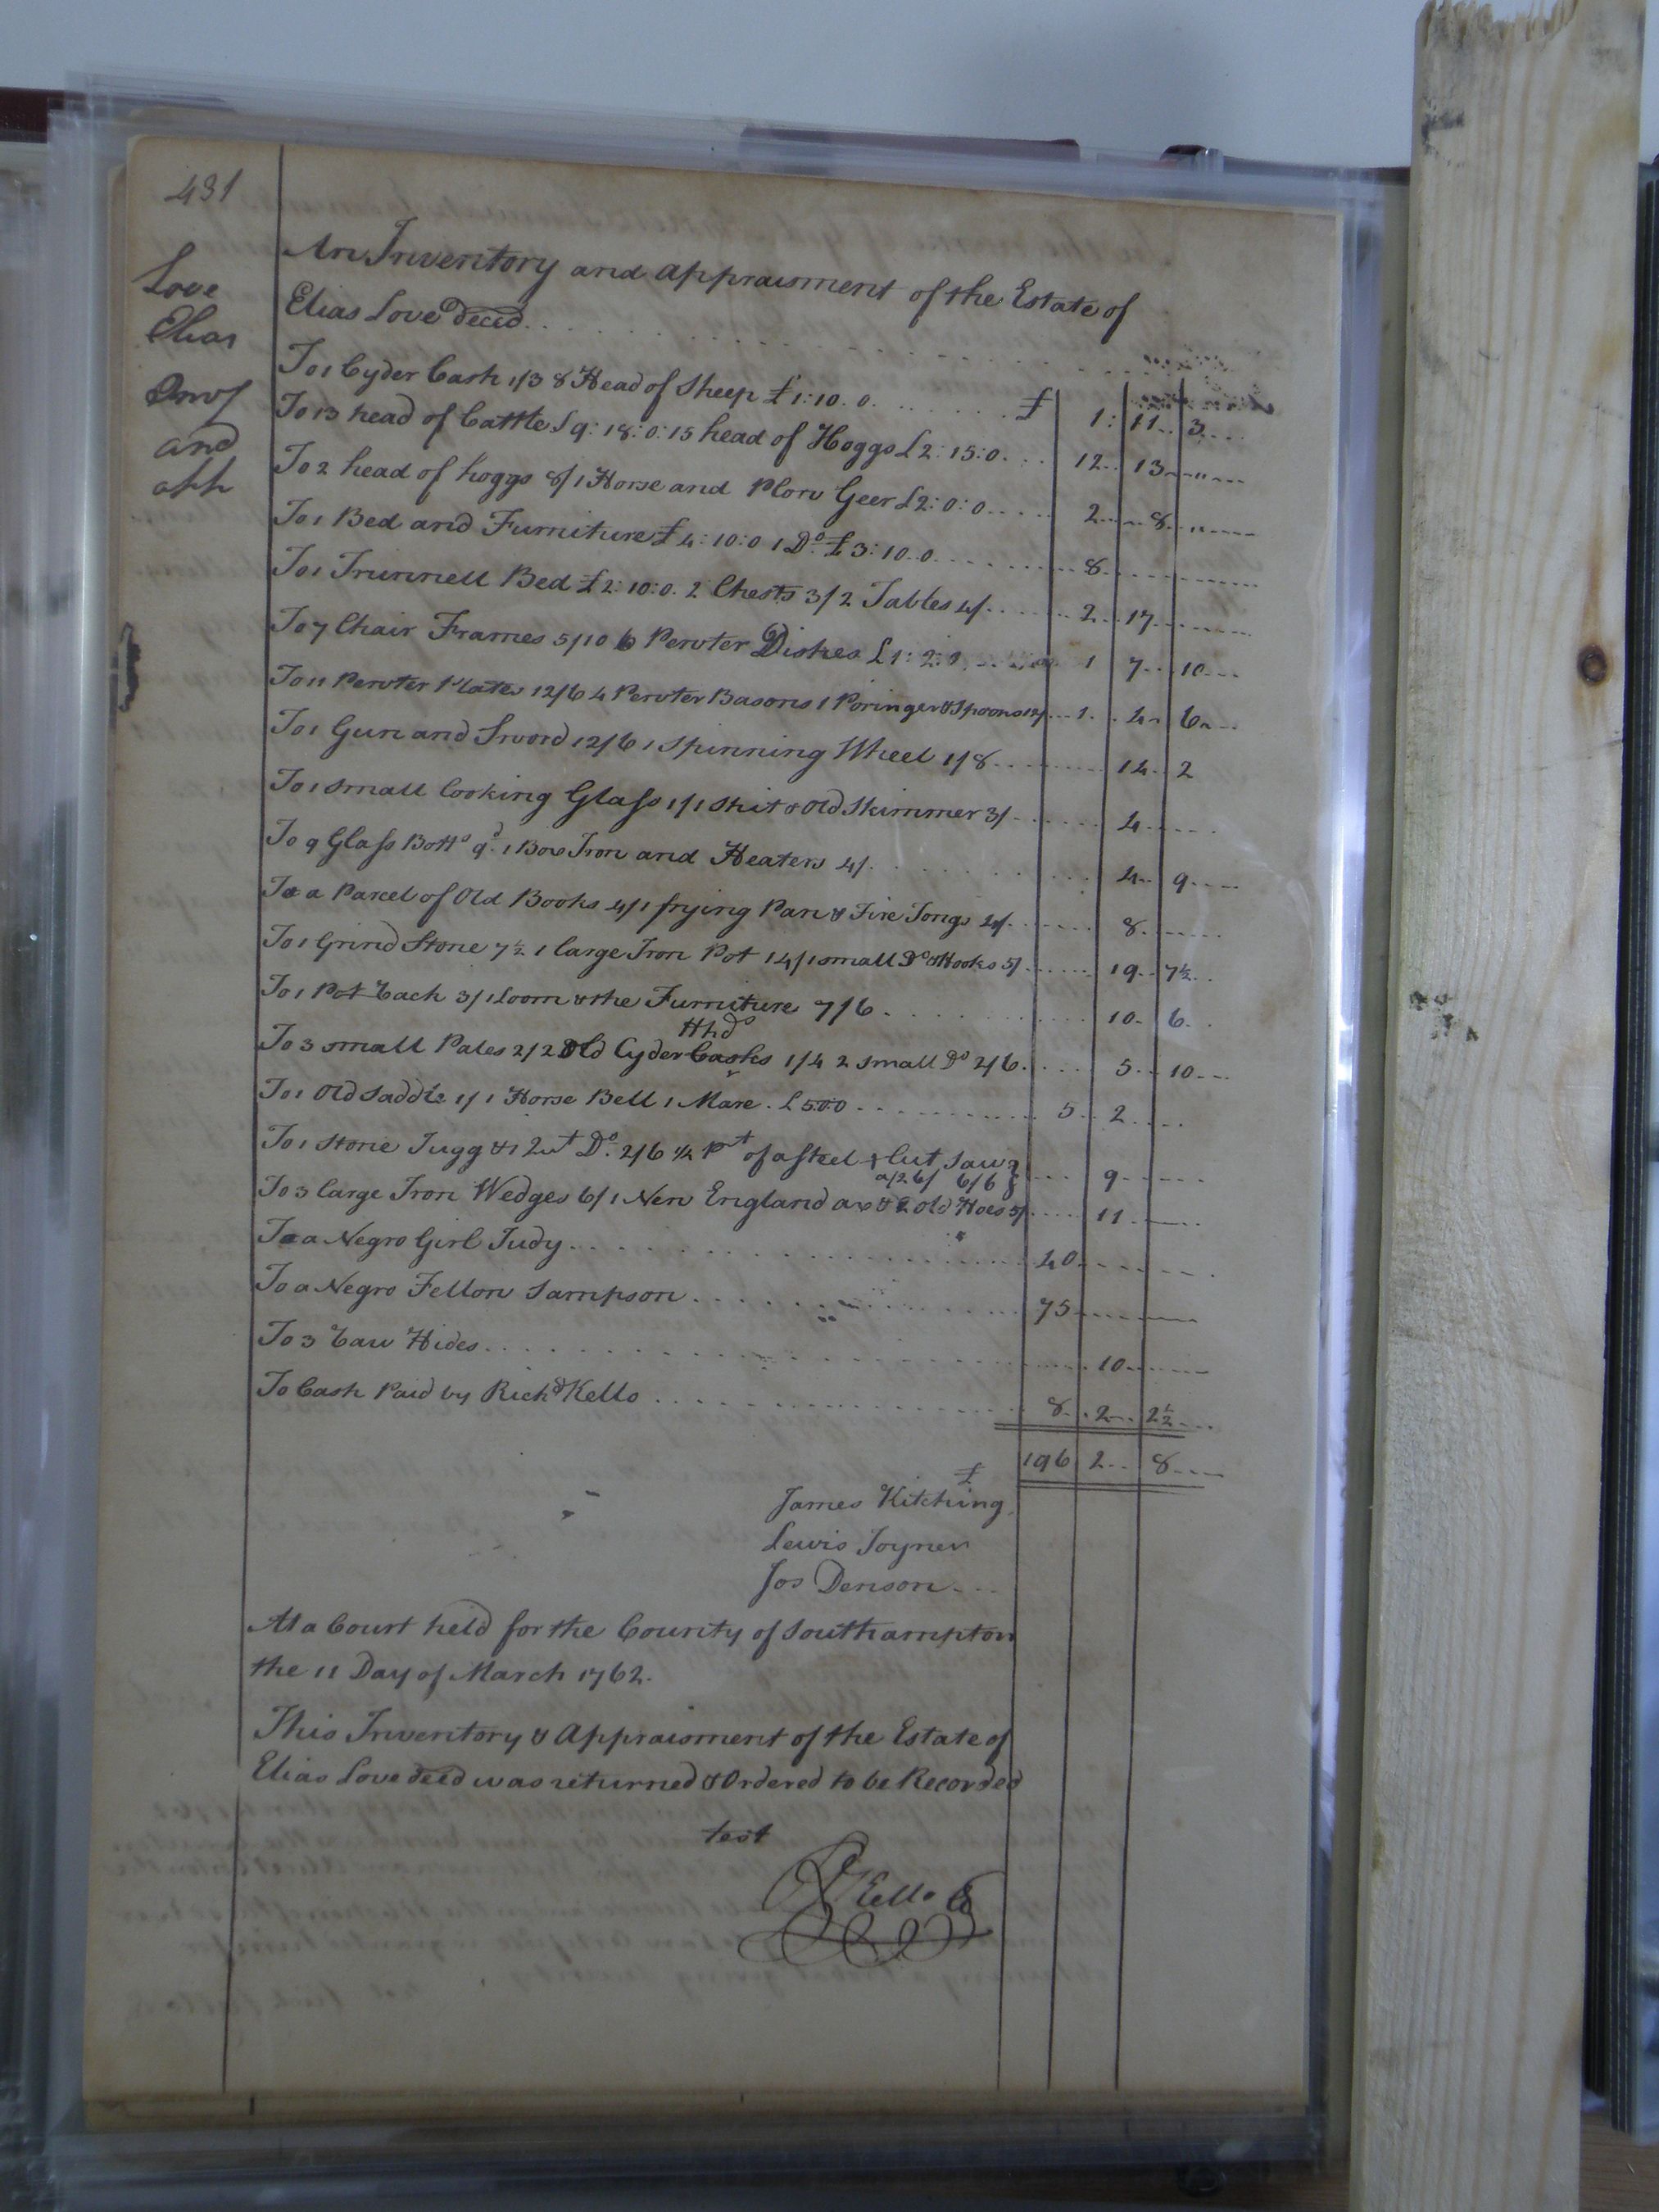 431
Love
Elias
Invy
and
app
An Inventory and Appraisment of the Estate of
Elias Love Decd
To 1 Cyder Cask 1/3 8 Head of Sheep £1:10.0 £ 1: 11 3
To 13 head of Cattle £9:18:0:15 head of Hoggs £2:15:0 12 13 "
To 2 head of hoggs 8/ 1 Horse and Plow Geer £2:0:0 2 8 "
To 1 Bed and Furniture £4:10:0 1 Do. £3:10.0 8
To 1 Trunnell Bed £2:10:0. 2 Chests 3/ 2 Tables 4/ 2 17
To 7 Chair Frames 5/10 6 Pewter Dishes £1:2:0 1 7 10
To 11 Pewter Plates 12/6 4 Pewter Basons 1 Poringer & Spoons 12/ 1 4 6
To 1 Gun and Sword 12/6 1 Spinning Wheel 1/8 14 2
To 1 small looking Glass 1/ 1 Skit & Old Skimmer 3/ 4
To 9 Glass Botts 9d. 1 Box Iron and Heaters 4/. 4 9
To a Parcel of Old Books 4/ 1 frying Pan & Fire Tongs 4/ 8
To 1 Grind Stone 7½ 1 large Iron Pot 14/ 1 small Do & Hooks 5/ 19 7½
To 1 Pot Rack 3/ 1 Loom & the Furniture 7/6 10 6
Hhds
To 3 small Pales 2/ 2 Old Cyder Casks 1/4 2 small Do 2/6 5 10
To 1 Old Saddle 1/ 1 Horse Bell 1 Mare. £5:0:0 5 2
To 1 Stone Jugg & 1 2qt Do. 2/6 ½ Pt of a Steel + Cut Saw 9
6/6
To 3 large Iron Wedges 6/ 1 New England ax & 2 old Hoes 5/ 11
To a Negro Girl Judy 40
To a Negro Fellow Sampson 75
To 3 Raw Hides 10
To Cash Paid by Richd Kello 8 2 2½
£ 196 2 8
James Kitching
Lewis Joyner
Jos Denson
At a Court held for the County of Southampton
the 11 Day of March 1762.
This Inventory & Appraisment of the Estate of
Elias Love decd was returned & Ordered to be Recorded
test
R Kello C